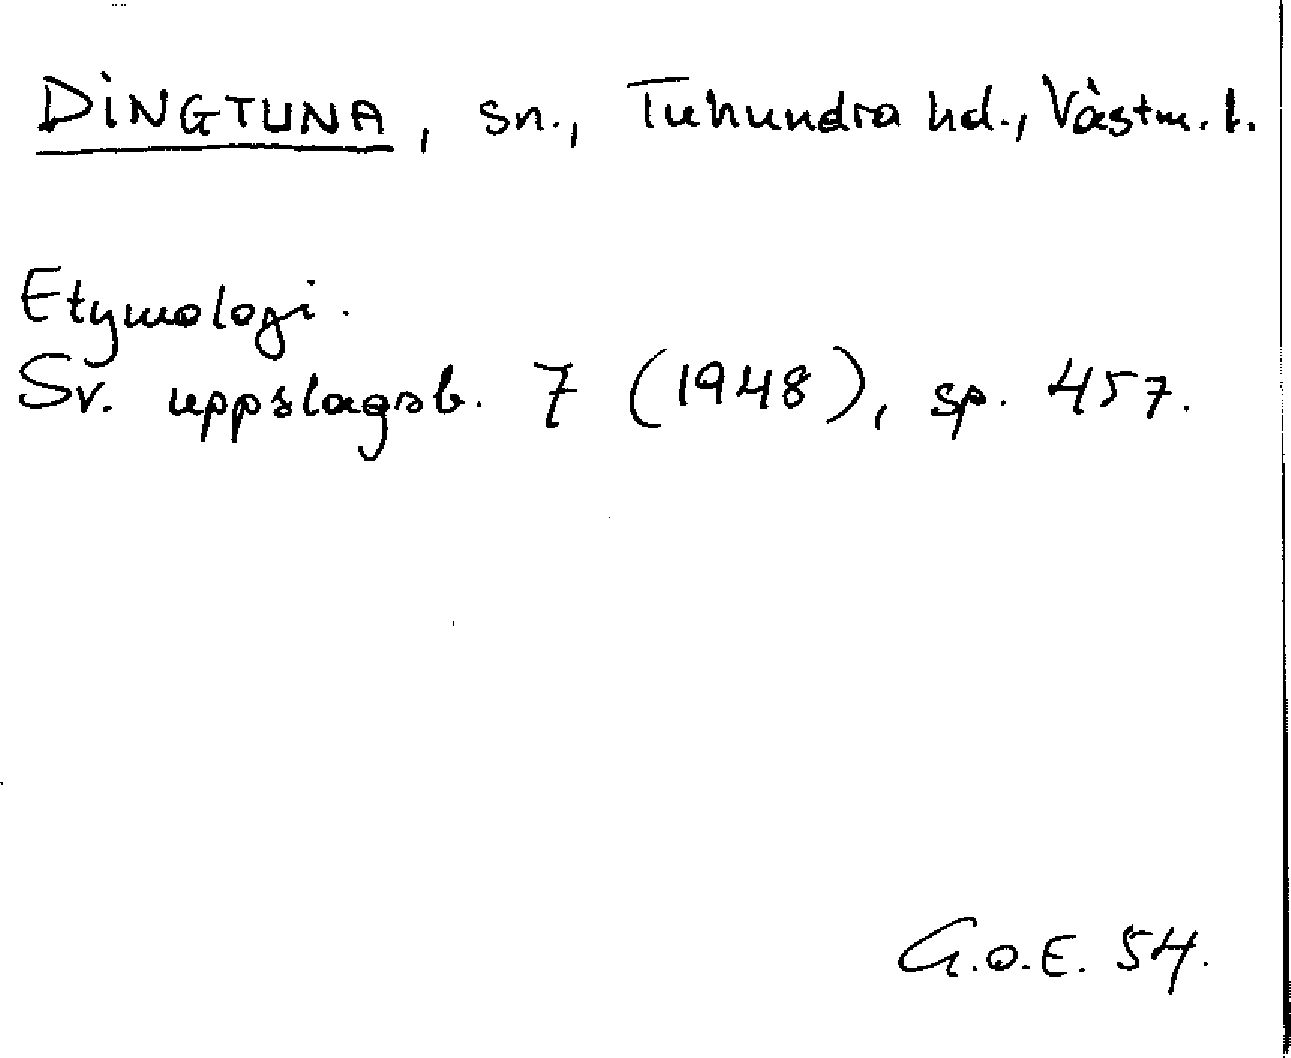 DINGTUNA, sn., Tuhundra hd., Västm. l.
Etymologi.
Sv. uppslagsb. 7 (1948), sp. 457.
G.O.E. 54.